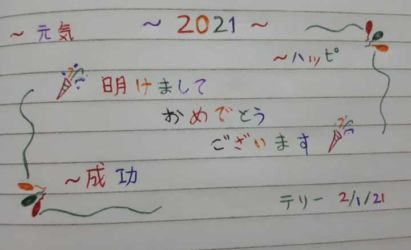 ~ 元気
~ 2021 ~
~ハッピ
明けまして
おめでとう
ございます
~成功
テリー 2/1/21